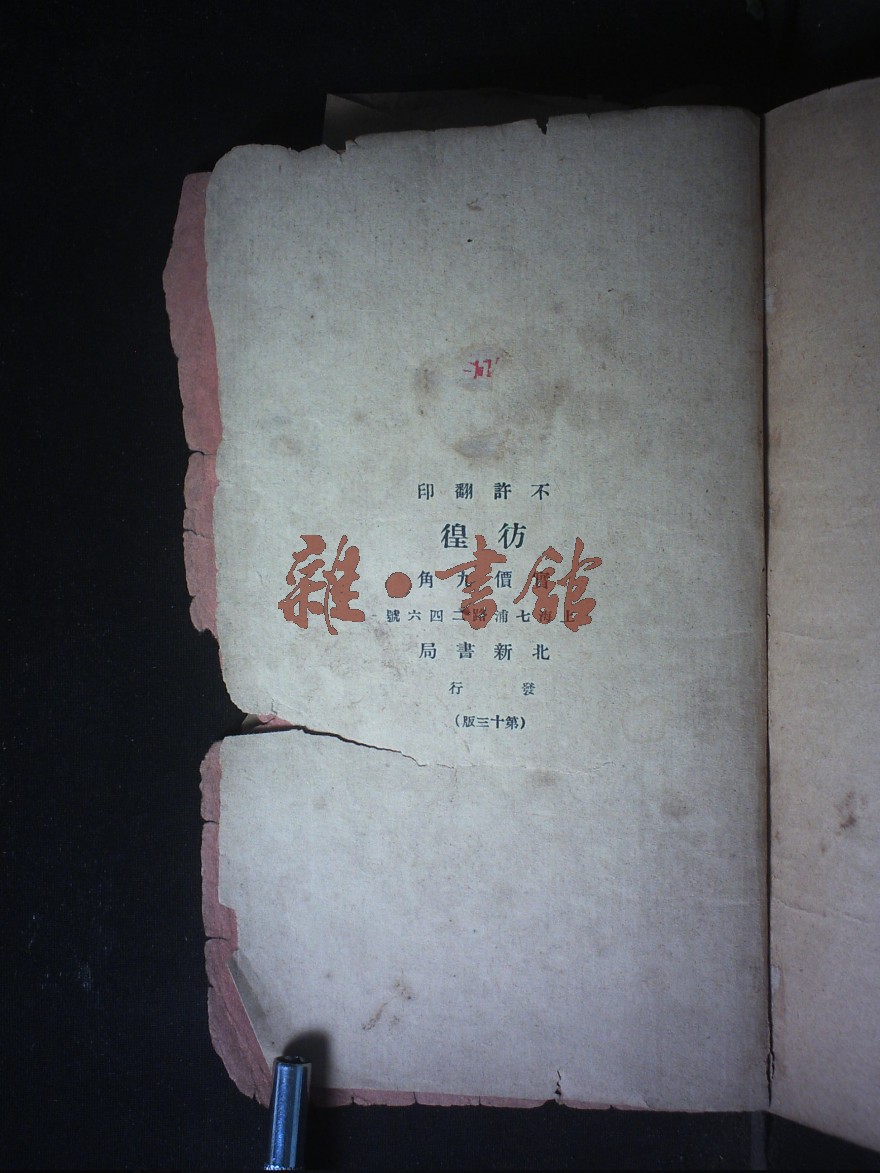 不許翻印
彷徨
實價九角
上海七浦路二四六號
北新書局
發行
(第十三版)
雜·書館